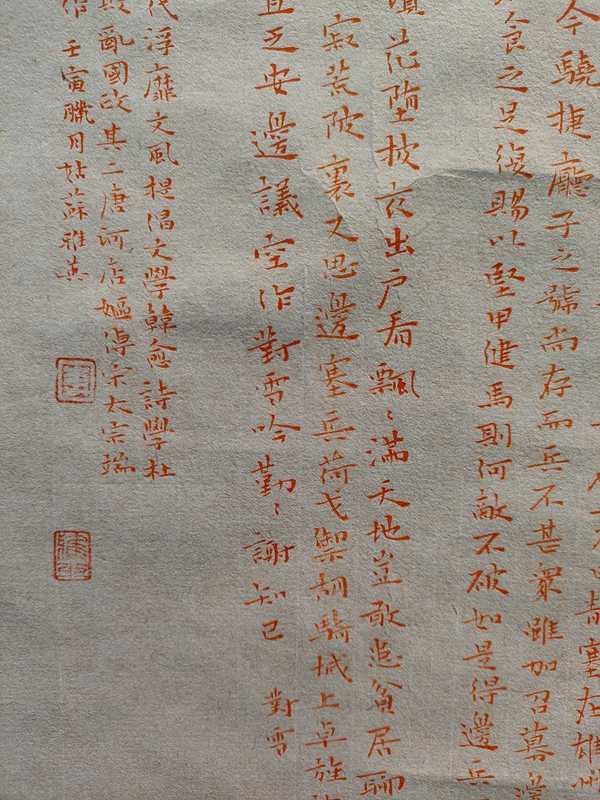 青塞在雄州
今驍捷廳子之號尚存而兵不甚衆雖加召募邊
食之足復賜以堅甲健馬則何敵不破如是得邊兵
花墮披衣出戶看飄〻滿天地豈敢患貧居聊
寂荒陂裏又思邊塞兵荷戈禦胡騎城上卓旌
且乏安邊議空作對雪吟勤〻謝知已 對雪
代浮靡文風提倡文學韓愈詩學杜
亂國政其二唐河店嫗傳宋太宗端
壬寅臘月姑蘇雅英